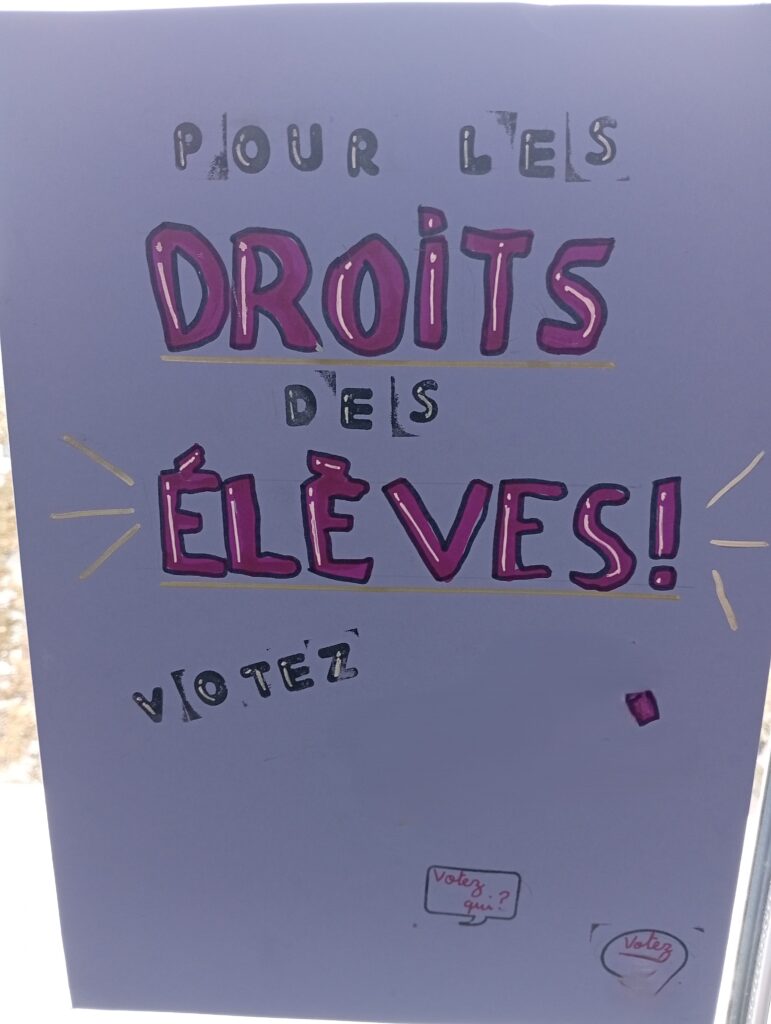 POUR LES
DROiTS
DES
ÉLÈVES!
VOTEZ
Votez
qui?
Votez